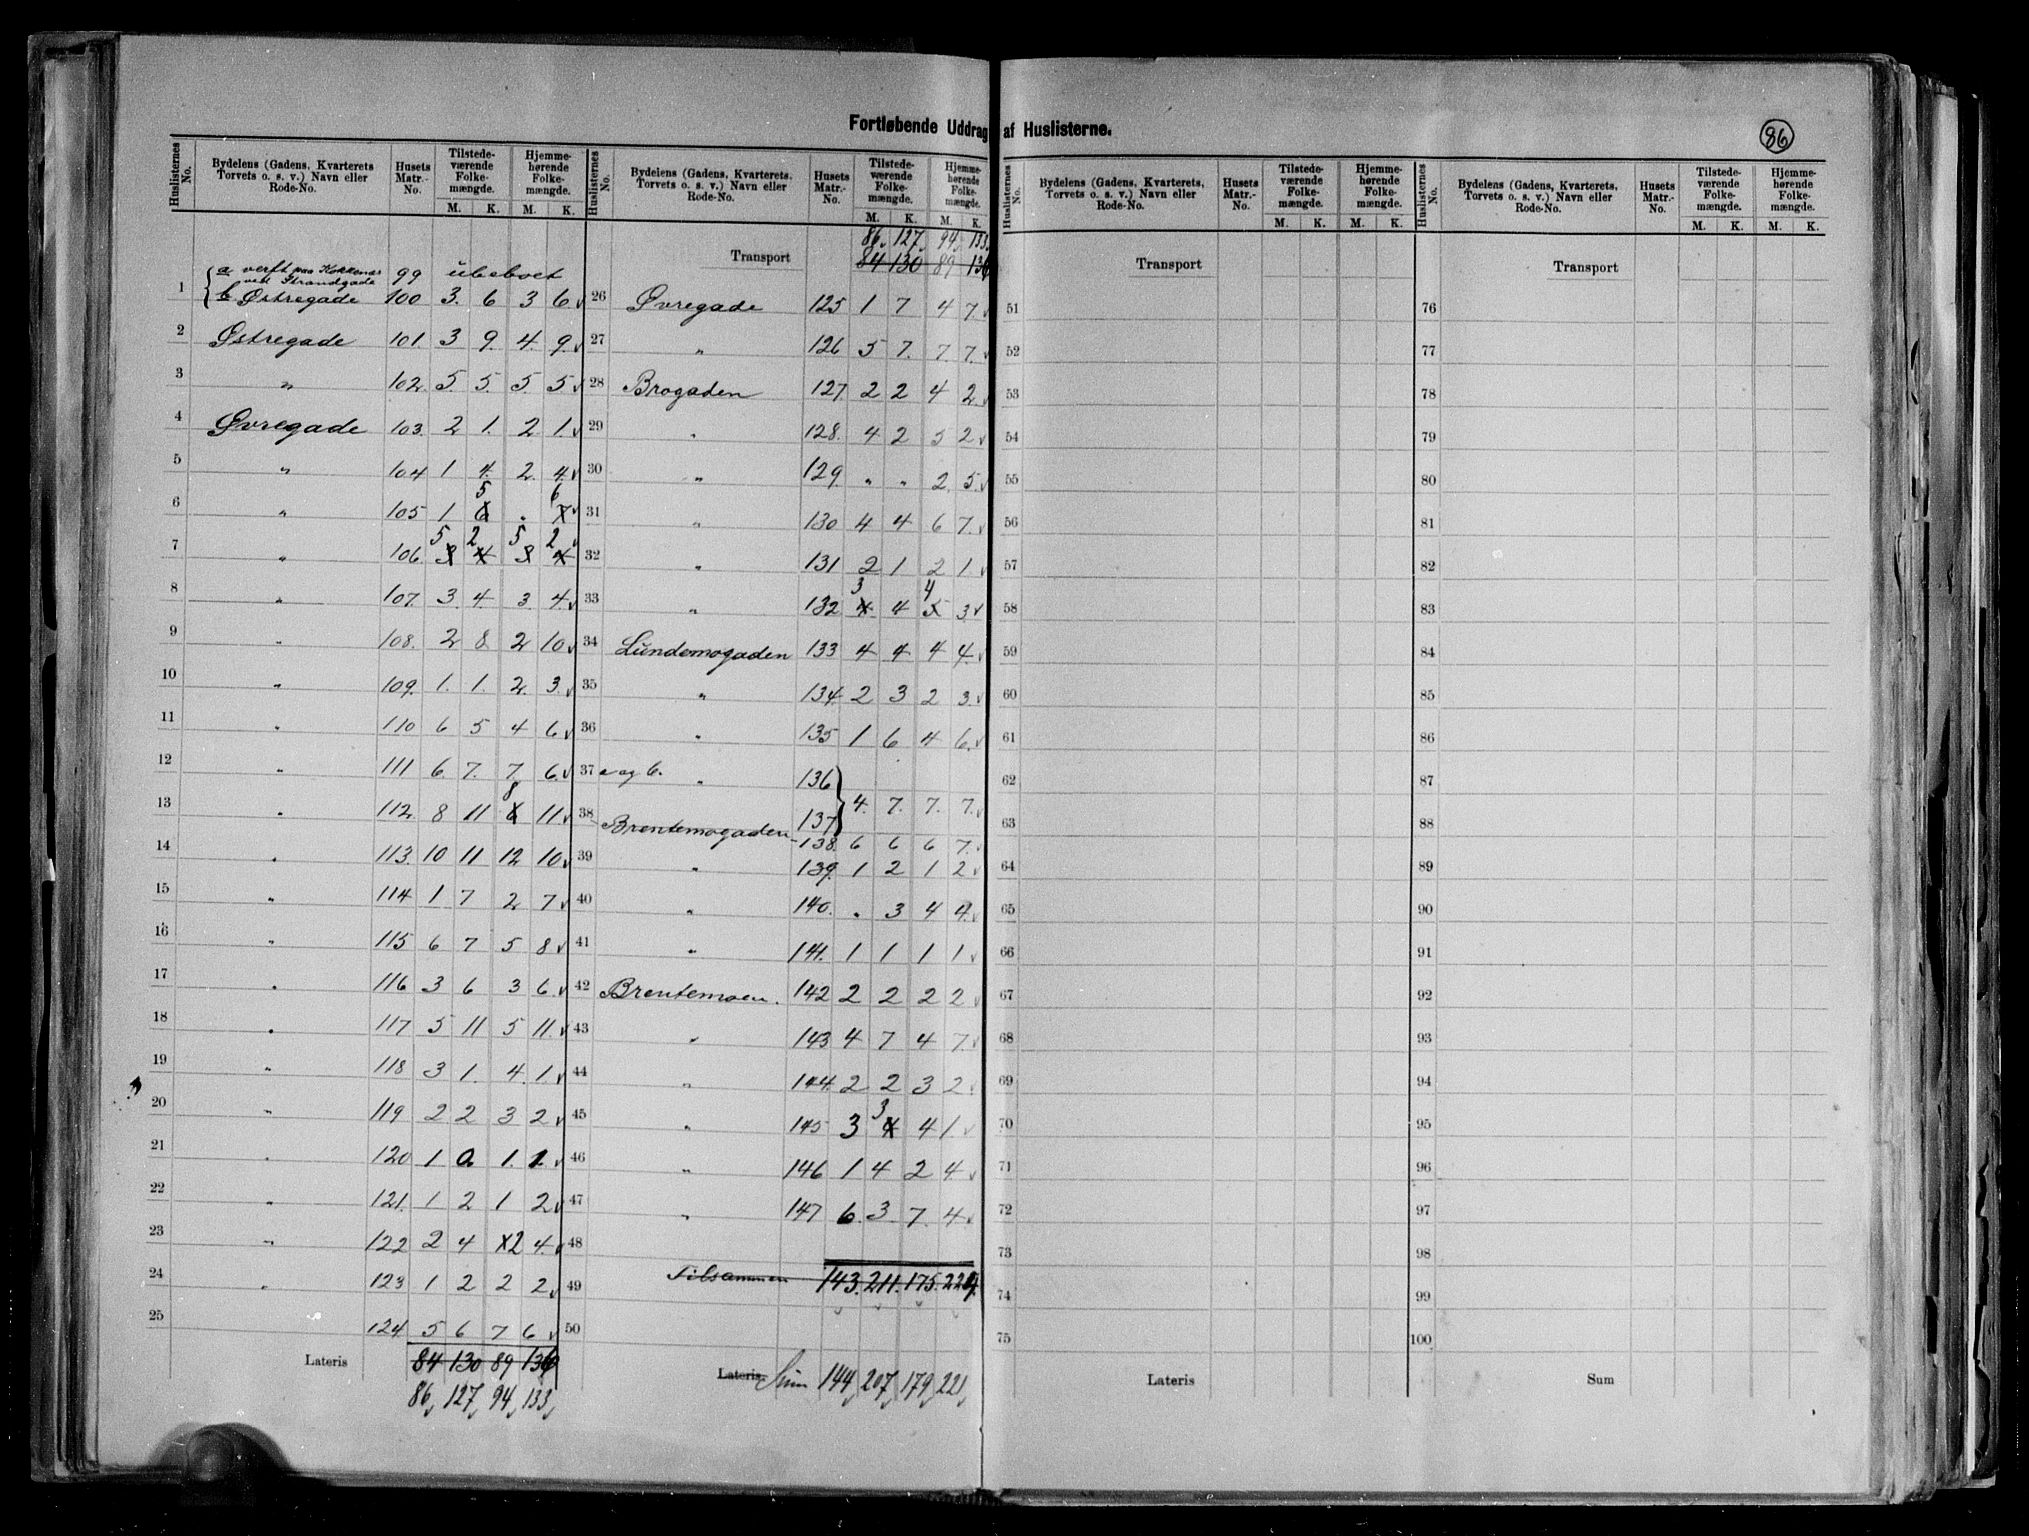 Fortløbende Uddrag af Huslisterne.
86
Huslisternes No. Bydelens (Gadens, Kvarterets Torvets o. s. v.) Navn eller Rode-No. Husets Matr.-No. Tilstede-værende Folke-mængde. M. K. Hjemme-hørende Folke-mængde. M. K.
1 a verft paa Kokkenes ved Strandgade 99 ubeboet
b Østregade 100 3. 6 3 6
2 Østregade 101. 3 9. 4. 9.
3 " 102. 5. 5. 5. 5
4 Øvregade 103. 2 1. 2 1.
5 " 104 1 4. 2. 4.
6 " 105 1 5 . 6
7 " 106. 5 2 5 2
8 " 107. 3. 4. 3. 4.
9 " 108. 2 8. 2 10
10 " 109. 1. 1. 2. 3.
11 " 110 6 5 4 6
12 " 111 6. 7. 7. 6.
13 " 112. 8 11 8 11
14 " 113. 10 11 12 10
15 " 114 1 7 2 7
16 " 115 6 7 5 8
17 " 116 3 6 3 6.
18 " 117 5 11 5 11.
19 " 118 3 1. 4. 1.
20 " 119 2 2 3 2
21 " 120 1 0 1. 1
22 " 121. 1 2 1 2
23 " 122 2 4 2 4.
24 " 123 1 2 2 2
25 124 5 6 7 6
Lateris 84 130 89 136
86 127 94 133
Huslisternes No. Bydelens (Gadens, Kvarterets, Torvets o. s. v.) Navn eller Rode-No. Husets Matr.-No. Tilstede-værende Folke-mængde. M. K. Hjemme-hørende Folke-mængde. M. K.
86 127 94 133
Transport 84 130 89 136
26 Øvregade 125 1 7 4 7.
27 " 126 5 7. 7. 7.
28 Brogaden 127. 2 2 4 2.
29 " 128. 4 2 5 2
30 " 129. " " 2. 5.
31 " 130 4 4 6 7.
32 " 131 2 1 2 1.
33 " 132 3 4 4 3.
34 Lundemogaden 133 4 4 4 4.
35 " 134. 2 3 2 3.
36 " 135 1 6 4 6.
37 a og b. " 136
38 137 4. 7. 7. 7.
Brentemogaden 138. 6 6 6 7.
39 " 139. 1 2 1 2
40 " 140. " 3 4 4.
41 " 141. 1 1 1 1
42 Brentemoen. 142 2 2 2 2
43 " 143 4 7 4 7.
44 " 144. 2 2 3 2
45 " 145 3 3 4 1.
46 " 146 1 4 2 4
47 " 147 6. 3. 7. 4
48
49 Tilsammen 143. 211. 175. 224.
50
Lateris. Sum 144 207 179 221
Huslisternes No. Bydelens (Gadens, Kvarterets, Torvets o. s. v.) Navn eller Rode-No. Husets Matr.-No. Tilstede-værende Folke-mængde. M. K. Hjemme-hørende Folke-mængde. M. K.
Transport
51
52
53
54
55
56
57
58
59
60
61
62
63
64
65
66
67
68
69
70
71
72
73
74
75
Lateris
Huslisternes No. Bydelens (Gadens, Kvarterets, Torvets o. s. v.) Navn eller Rode-No. Husets Matr.-No. Tilstede-værende Folke-mængde. M. K. Hjemme-hørende Folke-mængde. M. K.
Transport
76
77
78
79
80
81
82
83
84
85
86
87
88
89
90
91
92
93
94
95
96
97
98
99
100
Sum